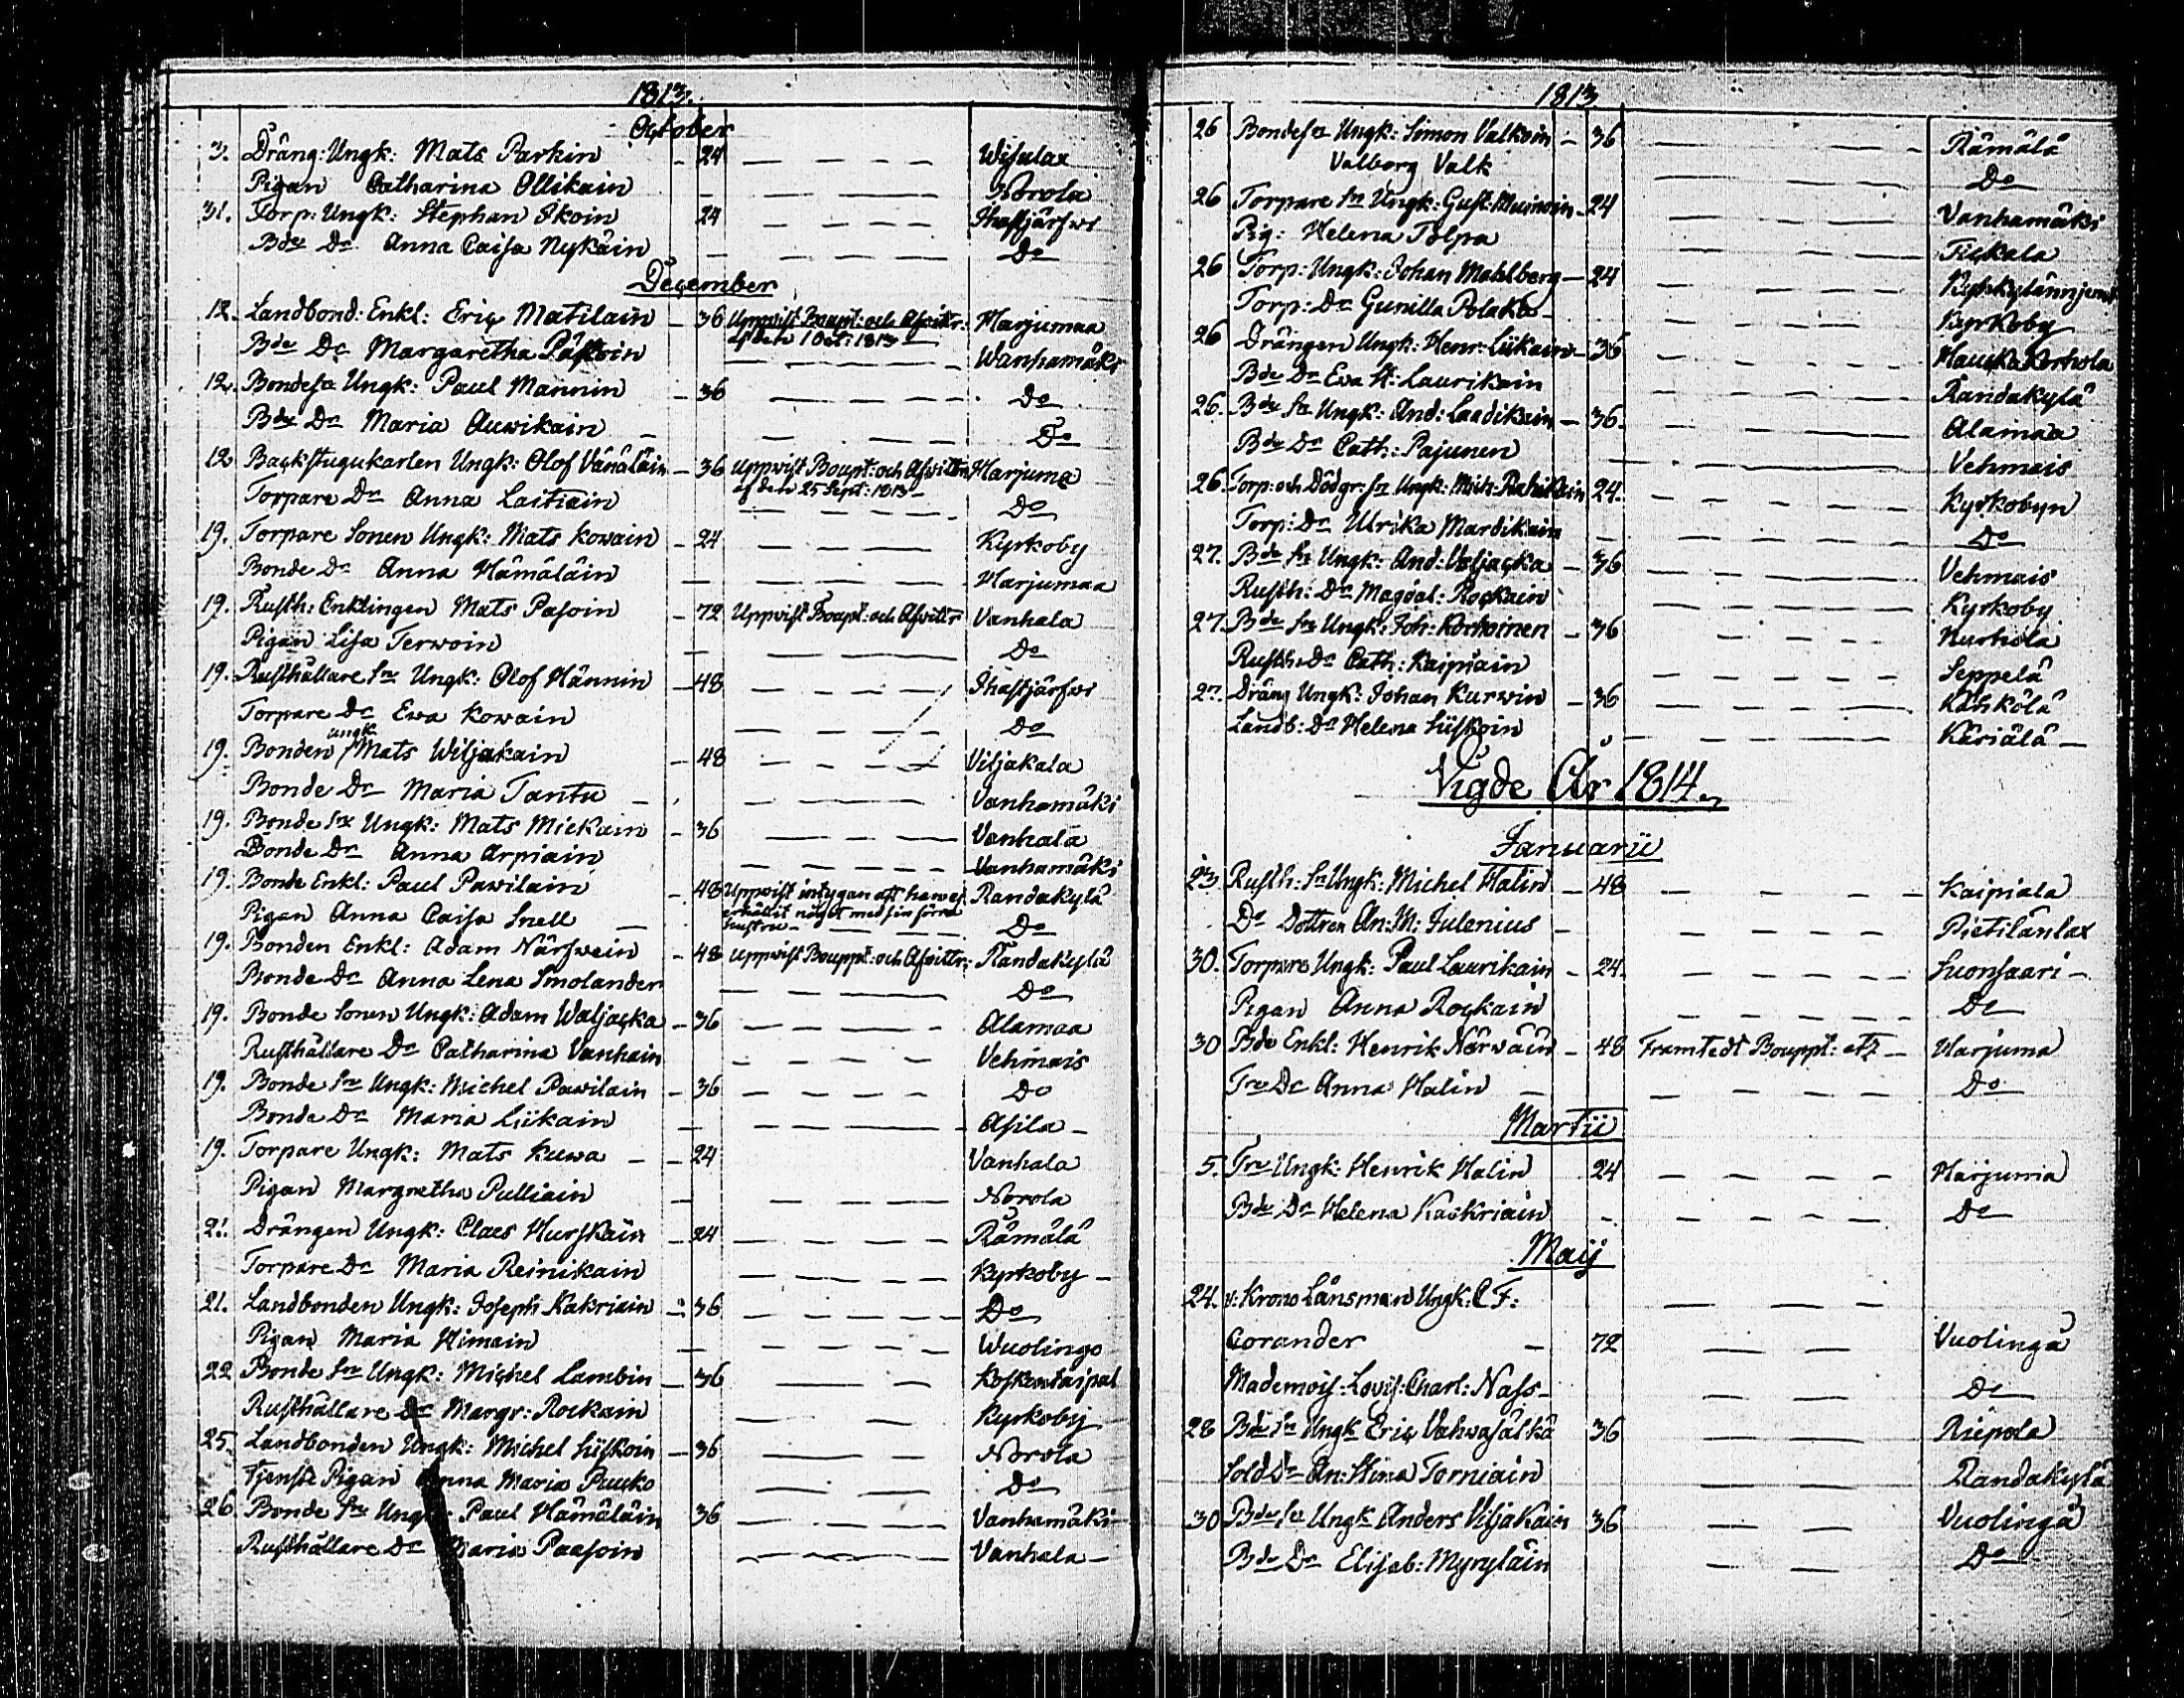 1813.
October
3. Dräng: Ungk: Mats Parkin - 24 Wisulax
Pigan Catharina Ollikain Norola
31. Torp: Ungk: Stephan Ikoin 24 Ihastjärfwi
Bde Dr Anna Caisa Nykäin Do
December
12. Landbond: Enkl: Eric Matilain - 36 Uppvist Boupt: och Afwittr: Harjumaa
af den 1 Oct: 1813
Bde Dr Margaretha Wanhamäki
12. Bondesn Ungk: Paul Mannin - 36 Do
Bde Dr Maria Auwikain - Do
12 Backstugukarlen Ungk: Olof Vänäläin - 36 Uppvist Boupt: och Afwittr: Harjuma
af den 25 Sept: 1813 -
Torpare Dr Anna Laitiain Do
19. Torpare Sonen Ungk: Mats Kowain - 24 Kyrkoby
Bonde Dr Anna Hämäläin Harjumaa
19. Rusth: Enklingen Mats Pasoin - 72 Uppvist Boupt: och Afwittr Vanhala
Pigan Lisa Terwoin Do
19. Rusthållare Sn Ungk: Olof Hännin - 48 Ihastjärfwi
Torpare Dr Ewa Kowain Do
19. Bonden ungk Mats Wiljakain - 48 Viljakala
Bonde Dr Maria Tantu - Vanhamäki
19. Bonde Sn Ungk: Mats Mickain - 36 Vanhala
Bonde Dr Anna Arpiain Vanhamäki
19. Bonde Enkl: Paul Pawilain - 48 Uppvist intygan att ha wej Randakylä
erhållit något med sin förra
hustru -
Pigan Anna Caisa Snell Do
19. Bonden Enkl: Adam Närfwein - 48 Uppvist Bouppt: och Afwittr: Randakylä
Bonde Dr Anna Lena Smolander Do
19. Bonde Sonen Ungk: Adam Waljacka - 36 Alamaa
Rusthållare Dr Catharina Vanhain Vehmais
19. Bonde Sn Ungk: Michel Pawilain - 36 Do
Bonde Dr Maria Liikain Asila -
19. Torpare Ungk: Mats Kuwa - - 24 Vanhala
Pigan Margretha Pulliain Norola
21. Drängen Ungk: Claes Hurskain - 24 Rämälä
Torpare Dr Maria Reinikain Kyrkoby -
21. Landbonden Ungk: Joseph Kakriain - 36 Do
Pigan Maria Himain Wuolingo
22 Bonde Sn Ungk: Michel Lambin - 36 Koskentaipal
Rusthållare Dr Margr: Rockain Kyrkoby
25. Landbonden Ungk: Michel Liiskoin - 36 Norola
Tjenste Pigan Anna Maria Pucko Do
26. Bonde Sn Ungk: Paul Hämäläin 36 Vanhamäki -
Rusthållare Dr Maria Paasoin Vanhala -
1813
26 Bondesn Ungk: Simon Valkoin - 36 Rämälä
Valborg Valk Do
26 Torpare Sn Ungk: Gust: Muinoin - 24 Vanhamäki
Pig: Helena Tolpa Tickala
26 Torp: Ungk: Johan Mahlberg - 24
Torp: Dr Gunilla Polakka - Kyrkoby
26 Drängen Ungk: Henr: Liikain - 36 Hauska Korhola
Bde Dr Ewa St: Laurikain Randakylä
26. Bde Sn Ungk: And: Laadikain - 36. Alamaa
Bde Dr Cath: Pajunen Vehmais
26. Torp: och Dödgr: Sn Ungk: Mich: 24. Kyrkobyn
Torp: Dr Ulrika Mardikain Do
27. Bde Sn Ungk: And: Valjacka - 36 Vehmais
Rusth: Dr Magdal: Rockain Kyrkoby
27. Bde Sn Ungk: Joh: Korhoinen - 36 Kurhola
Rusth: Dr Cath: Kaipiain Seppelä
27. Dräng Ungk: Johan Kurwin - 36 Käskölä
Landb: Dr Helena Liiskoin Käriälä -
Vigde År 1814.
Januarii
23. Rusth: Sn Ungk: Michel Halin - 48 Kaipiala
Do Dottren An: M: Julenius - Pietilänlax
30. Torpare Ungk: Paul Laurikain - 24. Suonsaari -
Pigan Anna Rockain Do
30 Bde Enkl: Henrik Närwäin - 48 Framtedt Bouppt: etz - Harjuma
Tre Dr Anna Halin - Do
Martii
5. Tre Ungk: Henrik Halin 24 Harjuma
Bde Dr Helena Kaskriain Do
Maij
24. v: Krono Länsman Ungk: C F:
Corander - 72 Vuolinga
Mademois: Lovis: Charl: Nass - Do
28 Bde Sn Ungk Eric Vahwasälkä 36 Riepola
Sold Dr An: Stina Torniain Randakylä
30 Bde Sn Ungk Anders Viljakain 36 Vuolinga
Bde Dr Elisab: Myryläin Do